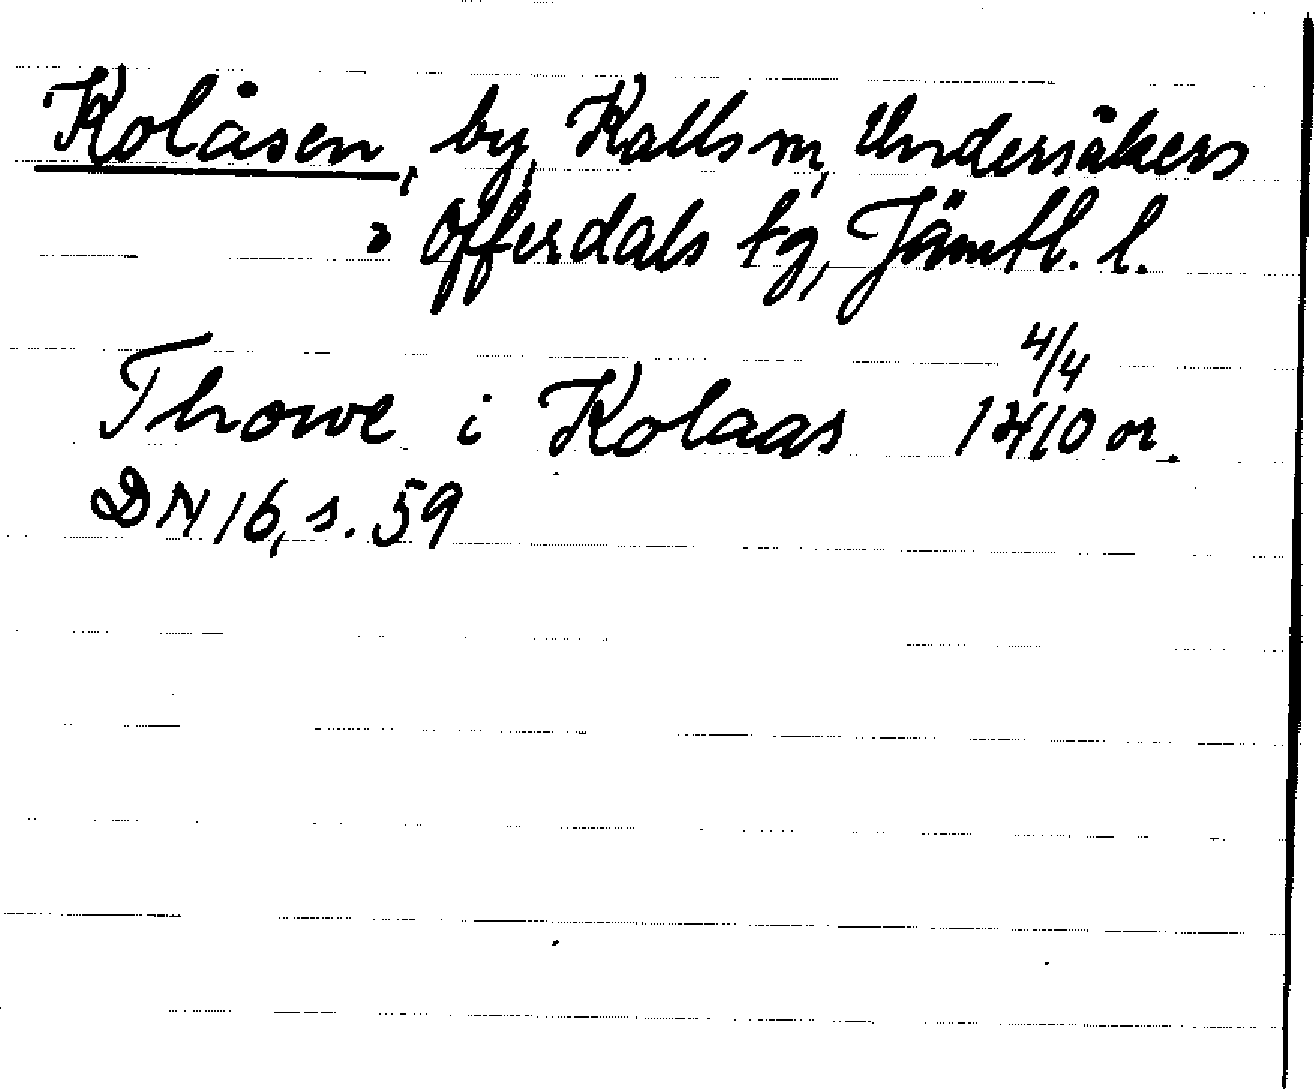 Kolåsen, by, Kalls sn, Undersåkers
o Offerdals tg, Jämtl. l.
Thowe i Kolaas 4/4 1410 or.
DN 16, s. 59